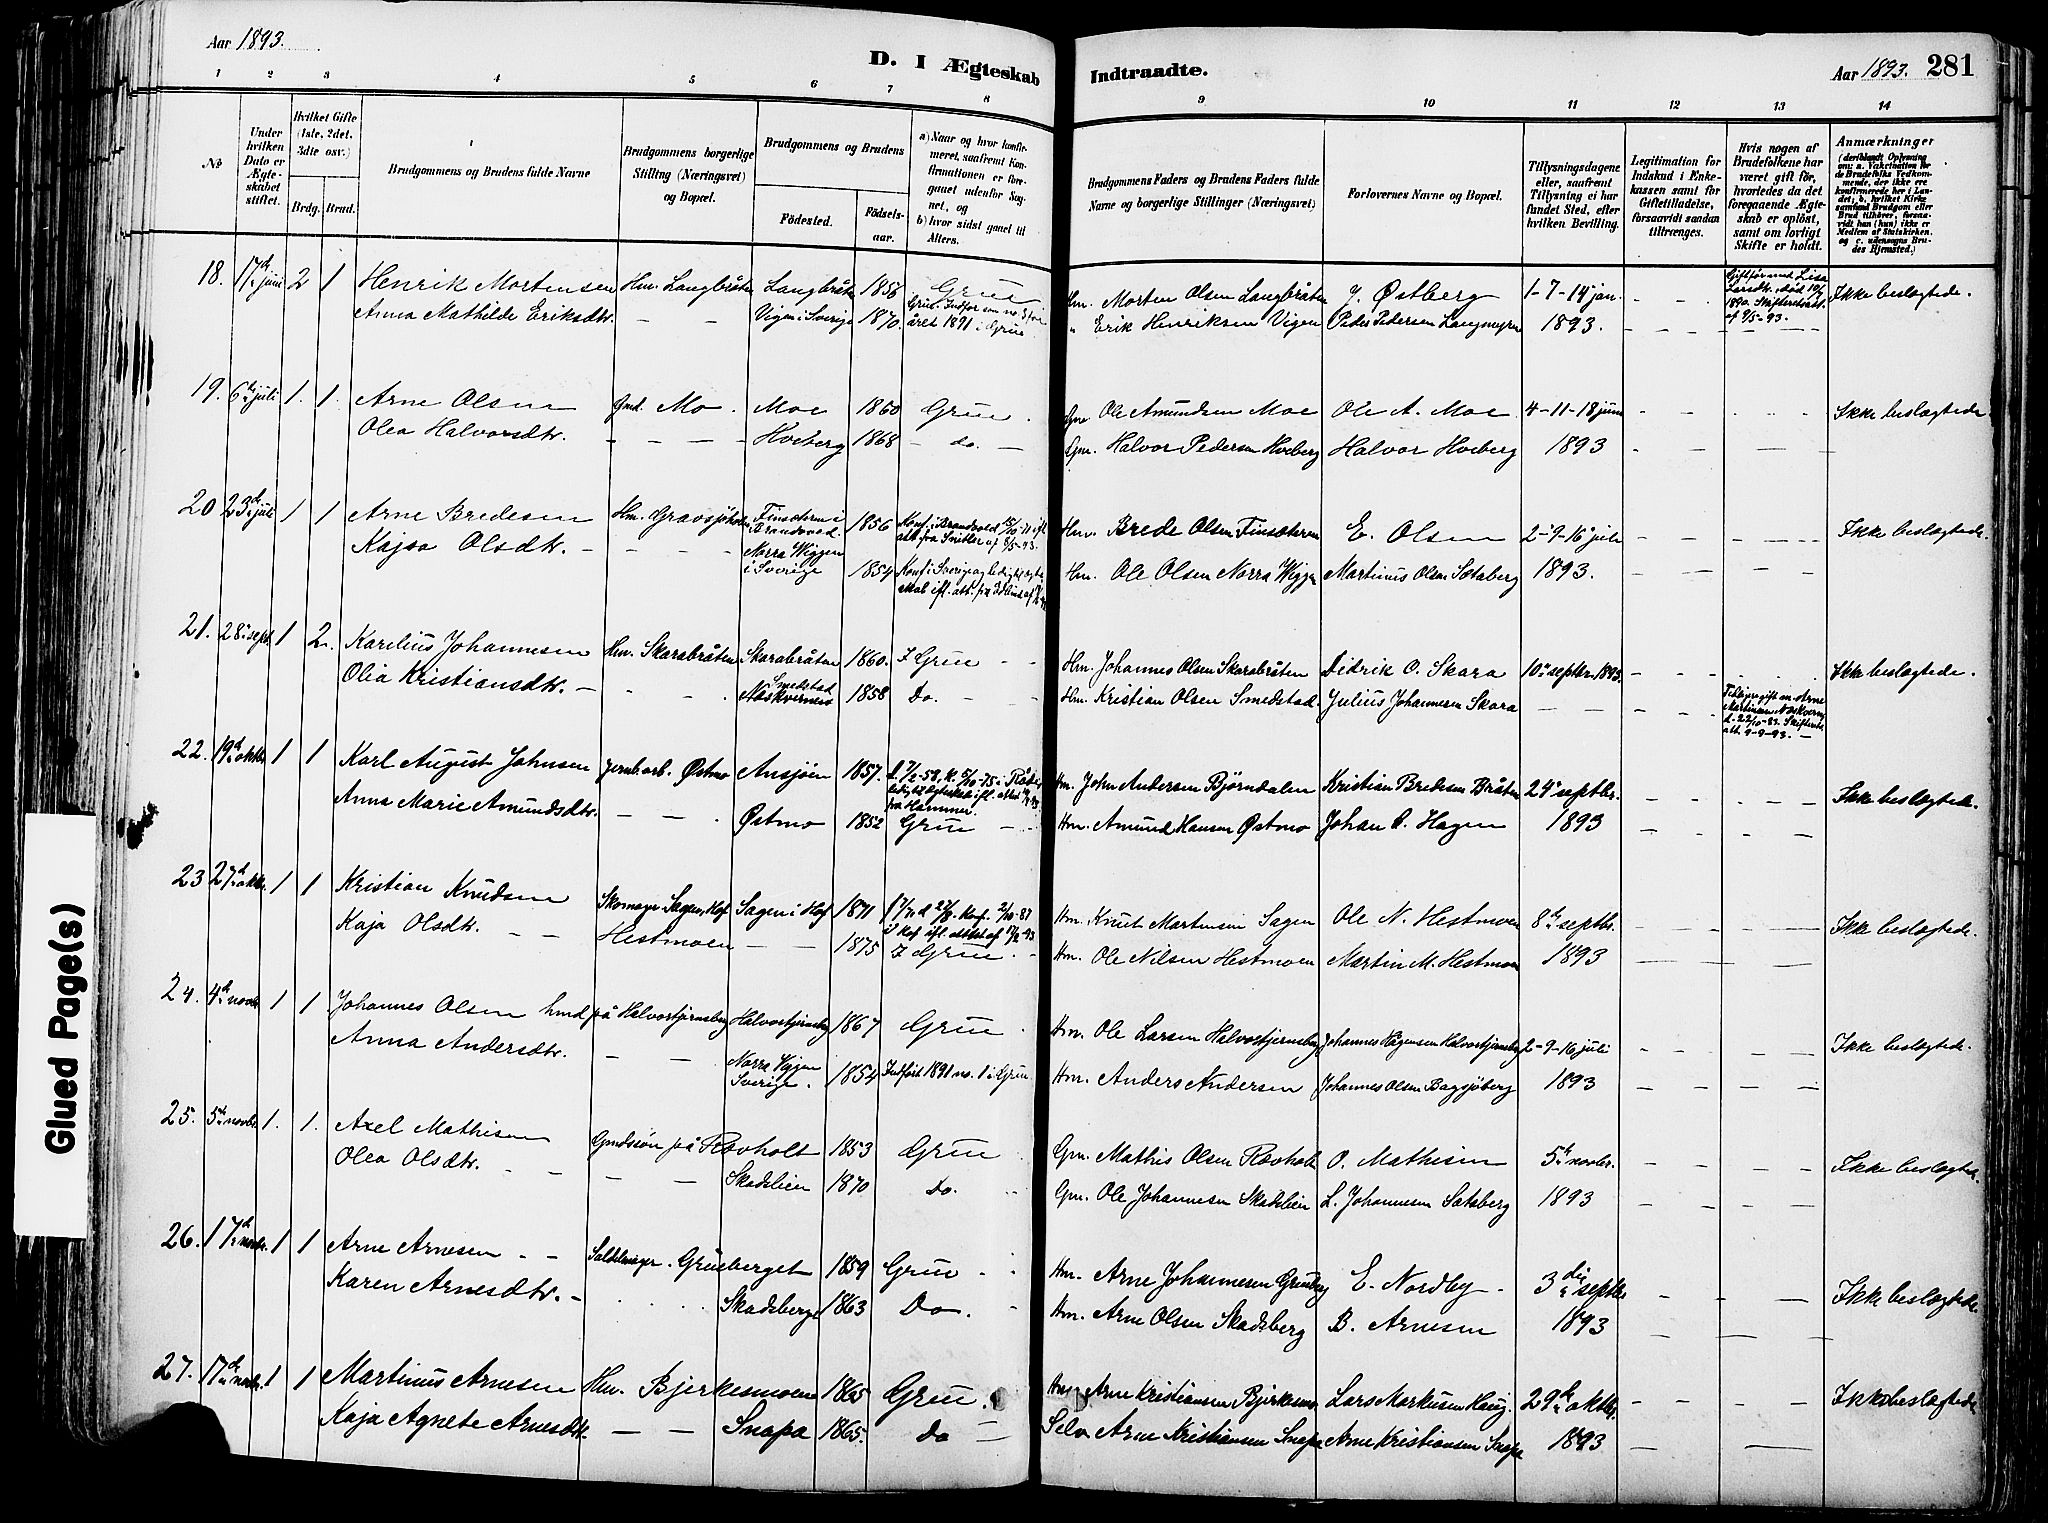 Aar 1893.
D. I Ægteskab
Indtraadte.
Aar 1893. 281
1 2 3 4 5 6 7 8 9 10 11 12 13 14
No
Under hvilken Dato er Ægteskabet stiftet.
Hvilket Gifte (1ste, 2det, 3die osv.)
Brdg. Brud.
Brudgommens og Brudens fulde Navne
Brudgommens borgerlige Stilling (Næringsvei) og Bopæl.
Brudgommens og Brudens
Fødested. Fødselsaar.
a) Naar og hvor konfirmeret, saafremt Konfirmationen er foregaaet udenfor Sognet, og
b) hvor sidst gaaet til Alters.
Brudgommens Faders og Brudens Faders fulde Navne og borgerlige Stillinger (Næringsvei)
Forlovernes Navne og Bopæl.
Tillysningsdagene eller, saafremt Tillysning ei har fundet Sted, efter hvilken Bevilling.
Legitimation for Indskud i Enkekassen samt for Giftetilladelse, forsaavidt saadan tiltrænges.
Hvis nogen af Brudefolkene har været gift før, hvorledes da det foregaaende Ægteskab er opløst, samt om lovligt Skifte er holdt.
Anmærkninger
18. 17de juni 2 1 Henrik Mortensen Hm. Langbråten Langbråten 1856 Grue Hm. Morten Olsen Langbråten J. Østberg 1-7-14 jan. Ikke beslægtede.
Anna Mathilde Eriksdtr. - - Vigen i Sverige 1870 året 1891 i Grue " Erik Henriksen Vigen Peder Pedersen Langmyren 1893.
19. 6te juli 1. 1. Arne Olsen Gmd. Mo. Moe 1860 Grue. Ole Amundsen Moe Ole A. Moe 4-11-18 juni Ikke beslægtede
Olea Halvorsdtr. - - - Hveberg 1868 - do. - Gm. Halvor Pedersen Hveberg Halvor Hveberg 1893
20 23de juli 1 1 Arne Bredesen Hm. Gravsjøholm Finsæteren i Brandvold 1856 Konf. i Brandvold Hm. Brede Olsen Finsæteren E. Olsen 2-9-16 juli Ikke beslægtede.
Kajsa Olsdtr. - - - Norra Wiggen i Sverige 1854 Konf. i Sverige Hm. Ole Olsen Norra Wiggen Martinus Olsen Sætaberg 1893.
21. 28. sept. 1 2. Karelius Johannesen Hm. Skarabråten Skarabråten 1860. I Grue Hm. Johannes Olsen Skarabråten Didrik O. Skara 10de septbr. 1893. Ikke beslægtede.
Olea Kristiansdtr. - Smedstad 1858 Do. - Hm. Kristian Olsen Smedstad. Julius Johannesen Skara
22. 19de oktbr. 1 1 Karl August Johnsen Jernb.arb. Østmo Ansjøen 1857. Hm. John Andersen Björndalen Kristian Bredesen Bråten 24de septbr. Ikke beslægtede.
Anna Marie Amundsdtr. - - Østmo 1852 Grue - Hm. Amund Hansen Østmo Johan A. Hagen 1893
23 27de oktbr. 1 1 Kristian Knudsen Skomager Sagen, Hof Sagen i Hof 1871 Hm. Knut Martinsen Sagen Ole N. Hestmoen 8de septbr. Ikke beslægtede.
Kaja Olsdtr. - - Hestmoen - - 1875 I Grue. Hm. Ole Nilsen Hestmoen Martin M. Hestmoen 1893
24. 4de novbr. 1 1 Johannes Olsen hmd på Halvorstjernsberg Halvorstjernsberg 1867 Grue. Hm. Ole Larsen Halvorstjernsberg Johannes Hågensen Halvorstjernsberg 2-9-16 juli Ikke beslægtede.
Anna Andersdtr. - - Norra Viggen Sverige. 1854 Indført 1891 no. 1 i Grue Hm. Anders Andersen Johannes Olsen Bagsjöberg 1893
25. 5te novbr. 1. 1. Axel Mathisen Gmdssön på Rovholt 1853 Grue Gm. Mathis Olsen Rovholt O. Mathisen 5te novbr. Ikke beslægtede.
Olea Olsdtr. - - Skadsleien 1870 Do. Gm. Ole Johannesen Skadsleien L. Johannesen Satsberg 1893
26. 17de novbr. 1 1 Arne Arnesen - - Sadelmager. Grueberget 1859 Grue Hm. Arne Johannesen Grueberg E. Nordby - 3die septbr. Ikke beslægtede
Karen Arnesdtr. - Skadsberg 1863 Do. Hm. Arne Olsen Skadsberg B. Arnesen 1893
27. 17de novbr. 1 1 Martinus Arnesen Hm. Bjerkesmoen 1865 Grue. Hm. Arne Kristiansen Bjerkesmo Lars Markusen Haug. 29de oktbr. Ikke beslægtede
Kaja Agnete Arnesdtr. - - Snapa 1865. do - Selv. Arne Kristiansen Snapa Arne Kristiansen Snapa 1893
Glued Page(s)